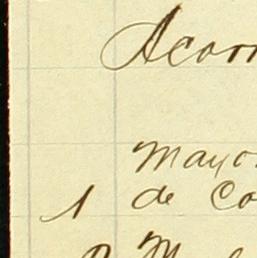 Acorn
Mayo
1 de Co